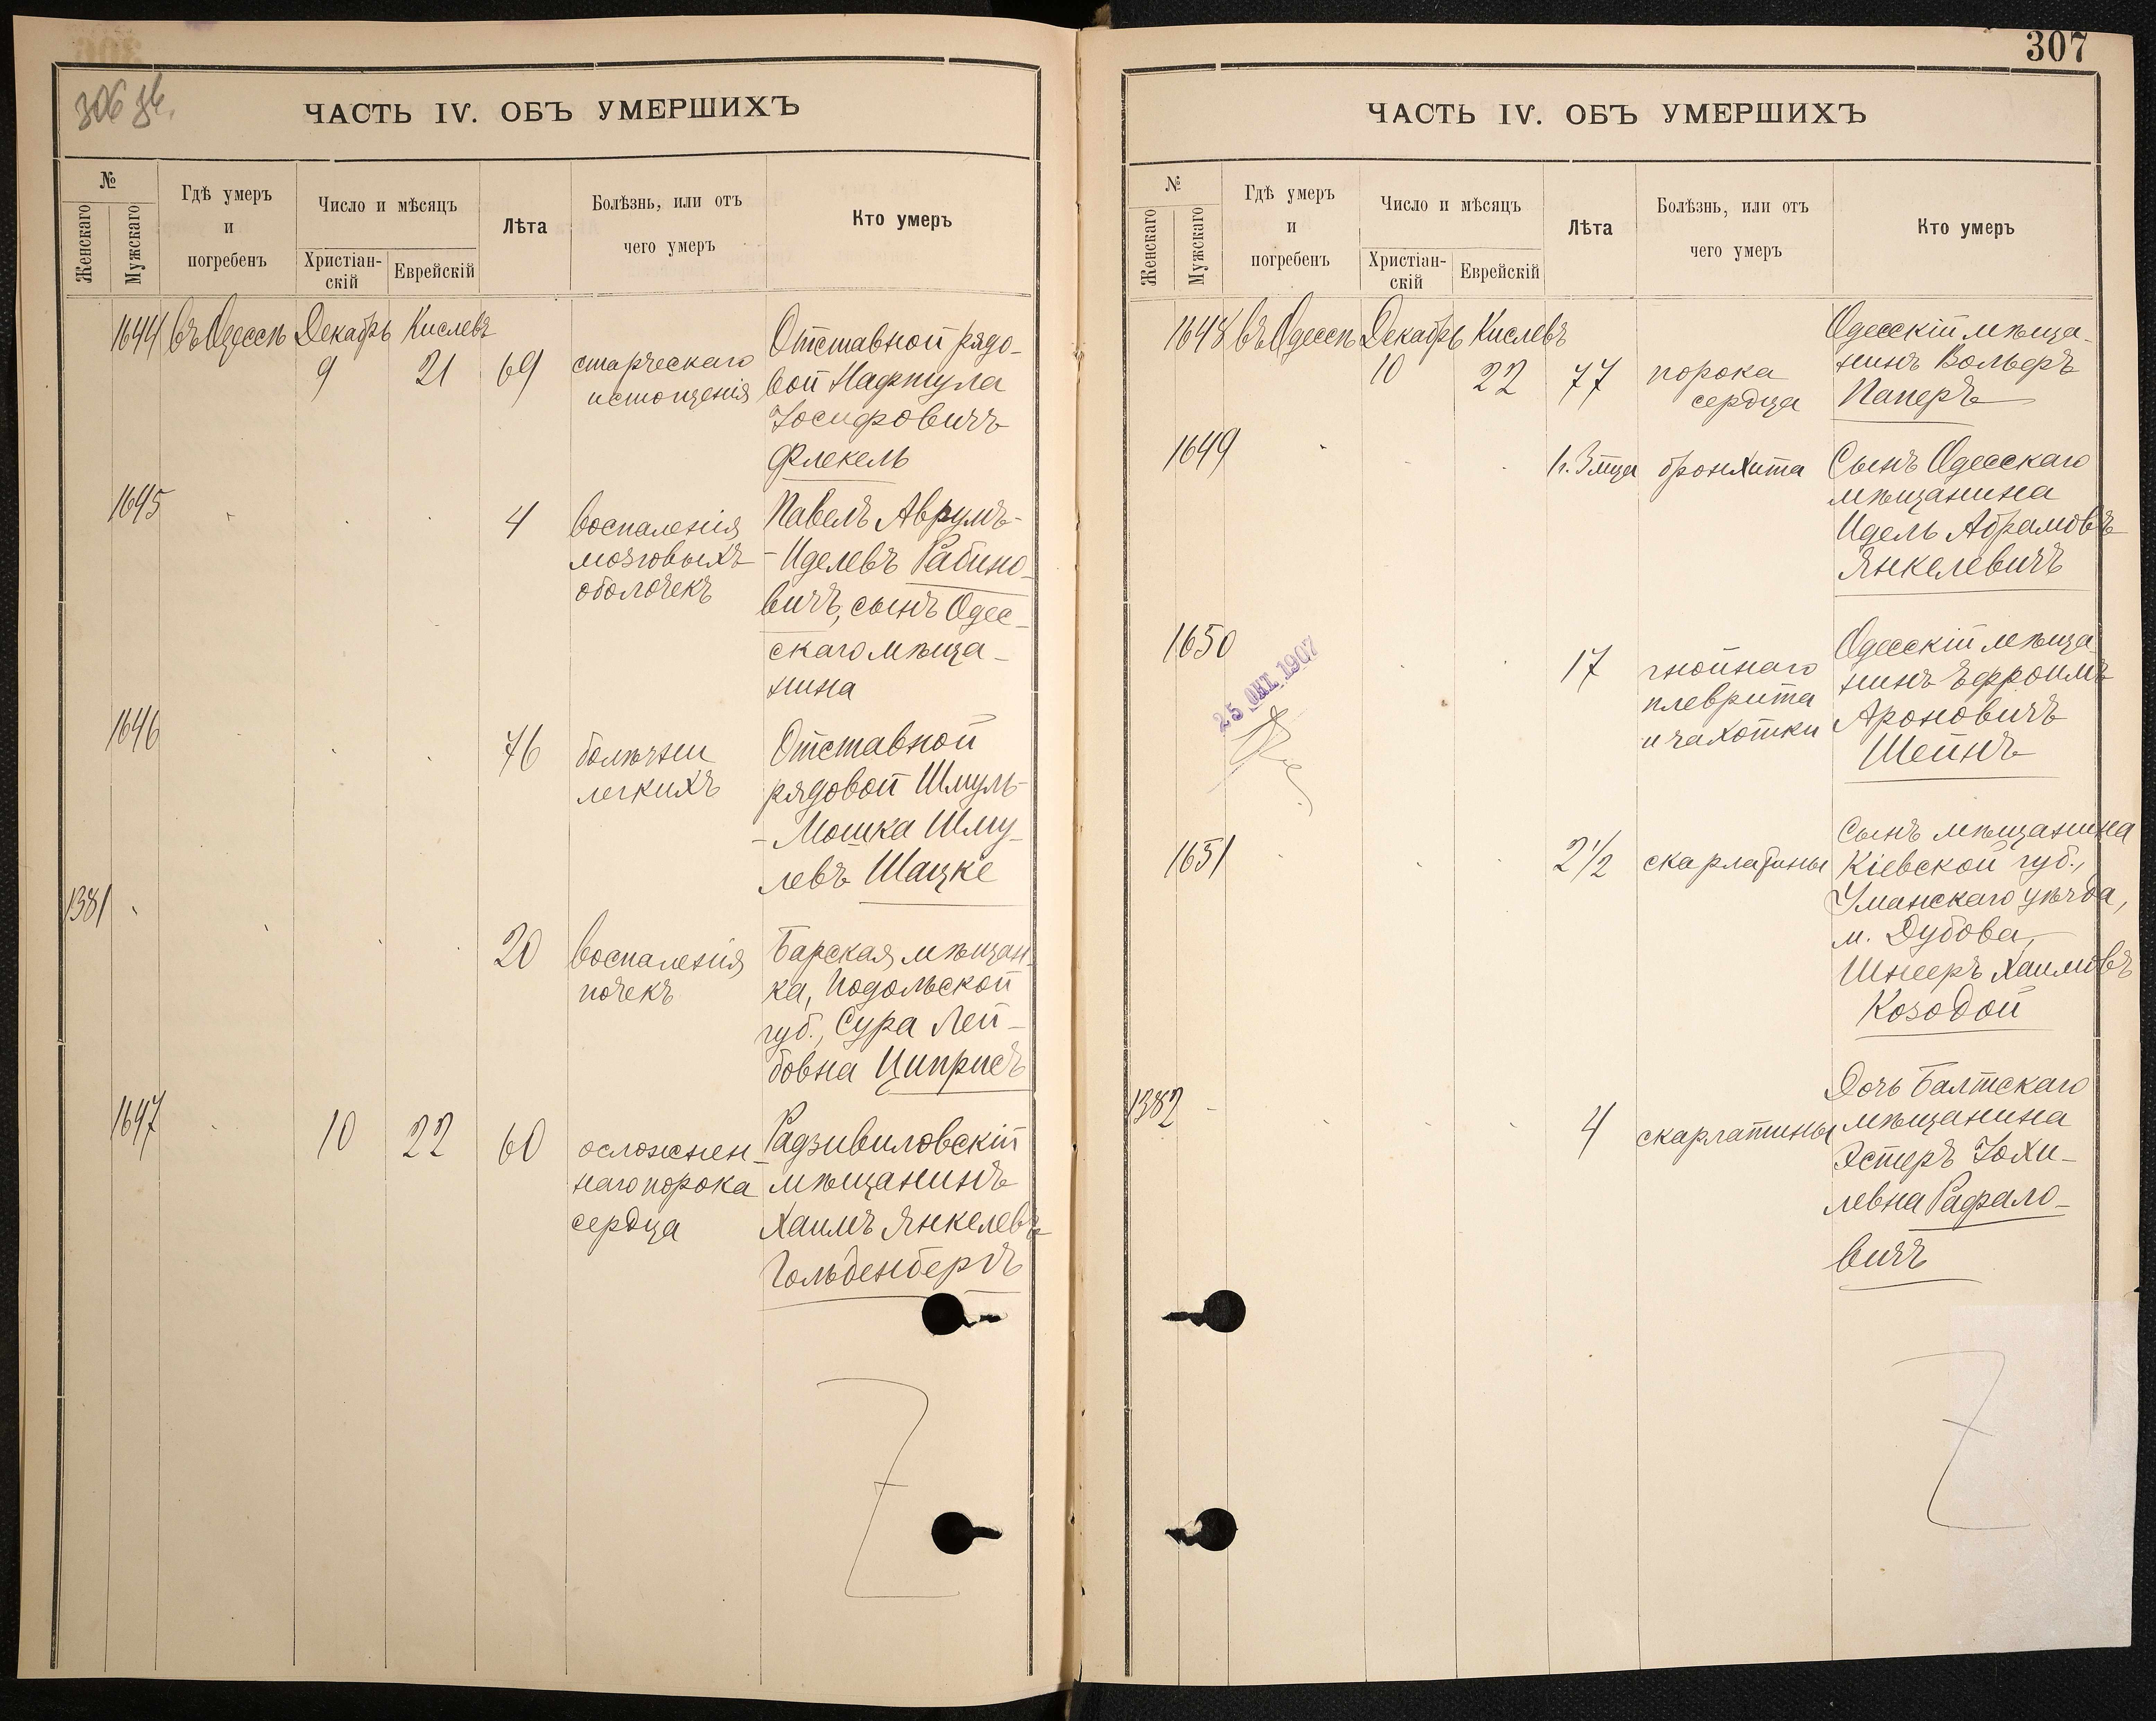 306 зв.
ЧАСТЬ IV. ОБЪ УМЕРШИХЪ
№
Женскаго
Мужскаго
Гдѣ умеръ
и
погребенъ
Число и мѣсяцъ
Христіан-
скій
Еврейскій
Лѣта
Болѣзнь, или отъ
чего умеръ
Кто умеръ
1644 въ Одессѣ Декабрь Кислевъ
9 21 69 старческаго
истощенія
Отставной рядо-
вой Нафтула
Іосифовичъ
Флекель
1645
4 воспаленія
мозговыхъ
оболочекъ
Павелъ Аврумъ-
-Иделевъ Рабино-
вичъ, сынъ Одес-
скаго мѣща-
нина
1646
76 болѣзни
легкихъ
Отставной
рядовой Шмуль-
-Мошка Шму-
левъ Шацке
1381
20 воспаленія
почекъ
Барская мѣщан-
ка, Подольской
губ., Сура Лей-
бовна Циприсъ
1647 10 22 60 осложнен-
наго порока
сердца
Радзивиловскій
мѣщанинъ
Хаимъ Янкелевъ
Гольденбергъ
307
ЧАСТЬ IV. ОБЪ УМЕРШИХЪ
№
Женскаго
Мужскаго
Гдѣ умеръ
и
погребенъ
Число и мѣсяцъ
Христіан-
скій
Еврейскій
Лѣта
Болѣзнь, или отъ
чего умеръ
Кто умеръ
1648 въ Одессѣ Декабрь Кислевъ
10 22 77 порока
сердца
Одесскій мѣща-
нинъ Вольфъ
Паперъ
1649
1 г. 3 мца бронхита
Сынъ Одесскаго
мѣщанина
Идель Абрамовъ
Янкелевичъ
1650
25 ОКТ. 1907
17 гнойнаго
плеврита
и чахотки
Одесскій мѣща-
нинъ Ефроимъ
Ароновичъ
Шейнъ
1651
2 1/2 скарлатины
Сынъ мѣщанина
Кіевской губ.,
Уманскаго уѣзда,
м. Дубова,
Шнееръ Хаимовъ
Козодой
1382
4 скарлатины
Дочь Балтскаго
мѣщанина
Эстеръ Іохи-
левна Рафало-
вичъ